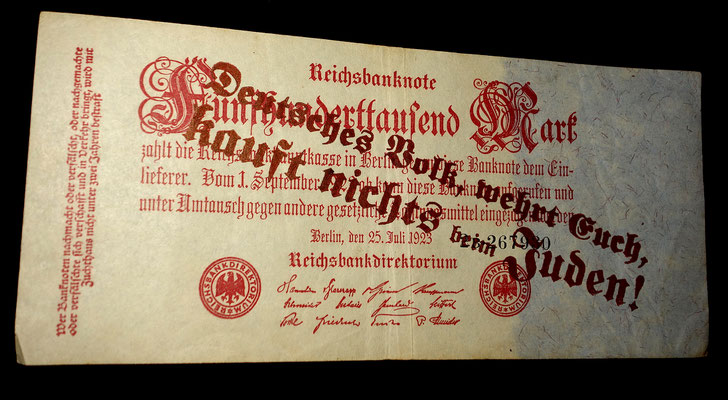 Wer Banknoten nachmacht oder verfälscht, oder nachgemachte
oder verfälschte sich verschafft und in Verkehr bringt, wird mit
Zuchthaus nicht unter zwei Jahren bestraft
Reichsbanknote
Fünfhunderttausend Mark
zahlt die Reichsbankhauptkasse in Berlin gegen diese Banknote dem Ein-
lieferer. Vom 1. September ab kann diese Banknote aufgerufen und
unter Umtausch gegen andere gesetzliche Zahlungsmittel eingezogen werden
Berlin, den 25. Juli 1923
Reichsbankdirektorium
REICHSBANKDIREKTORIUM
REICHSBANKDIREKTORIUM
Deutsches Volk wehrt Euch,
kauft nichts beim Juden!